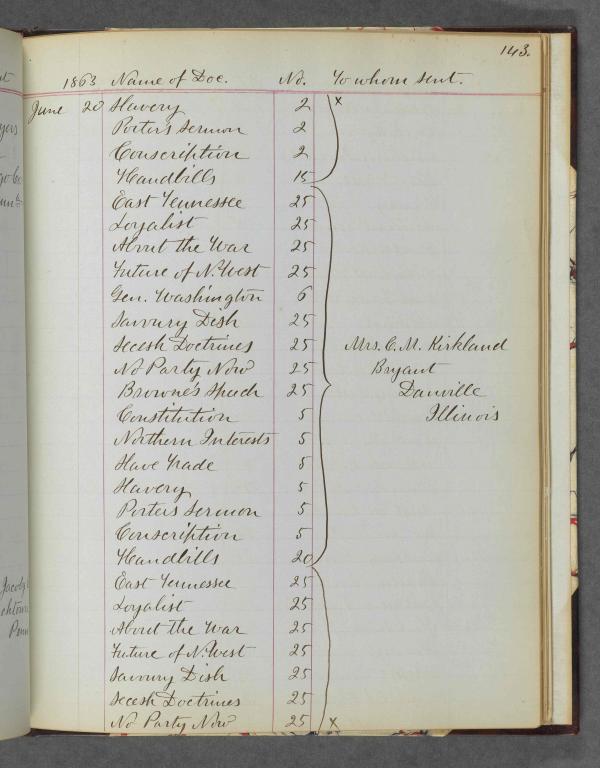 143.
1863 Name of Doc. No. To whom sent.
June 20 Slavery 2 x
Porter's Sermon 2
Conscription 2
Handbills 15
East Tennessee 25
Loyalist 25
About the War 25
Future of N. West 25
Gen. Washington 6
Savoury Dish 25
Secesh Doctrines 25 Mrs. C. M. Kirkland
No Party Now 25 Bryant
Browne's Speech 25 Danville
Constitution 5 Illinois
Northern Interests 5
Slave Trade 5
Slavery 5
Porters Sermon 5
Conscription 5
Handbills 20
East Tennessee 25
Loyalist 25
About the War 25
Future of N. West 25
Savoury Dish 25
Secesh Doctrines 25
No Party Now 25 x